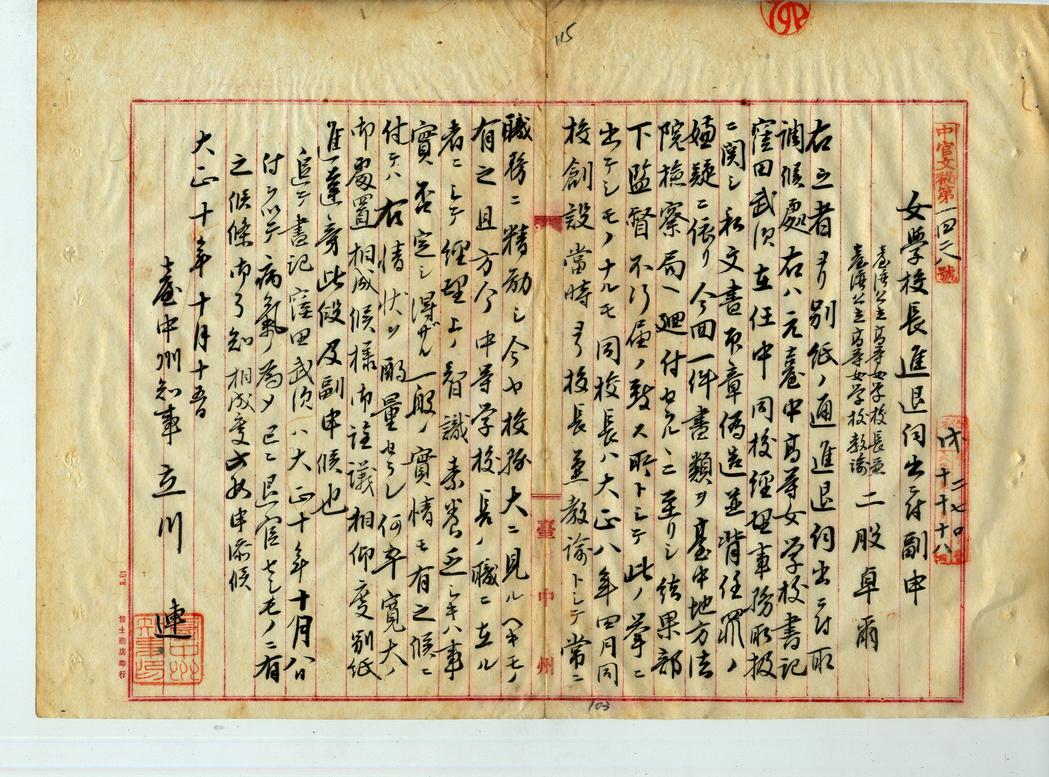 115
中官文秘第一四二八號
女学校長進退伺出ニ付副申
臺湾公立高等女学校長兼
臺湾公立高等女学校教諭
二股卓爾
右之者ヨリ別紙ノ通進退伺出ニ付取
調候處右ハ元臺中高等女学校書記
窪田武次在任中同校経理事務取扱
ニ関シ私文書印章偽造並背任罪ノ
嫌疑ニ依リ今回一件書類ヲ臺中地方法
院検察局ヘ廻付セラルニ至リシ結果部
下監督不行届ノ致ス所トシテ此ノ挙ニ
出テシモノナルモ同校長ハ大正八年四月同
校創設当時ヨリ校長並教諭トシテ常ニ
職務ニ精励シ今ヤ校務大ニ見ルヘキモノ
有之且方今中等学校長ノ職ニ在ル
者ニシテ経理上ノ智識素養乏シキハ事
實否定シ得ザル一般ノ實情モ有之候ニ
付テハ右情状ヲ酌量セラレ何卒寛大ノ
御處置相成候様御詮議相仰度別紙
進達旁此段及副申候也
追テ書記窪田武次ハ大正十年十月八日
付ヲ以テ病氣ノ為メ已ニ退官セシモノニ有
之候條御了知相成度
申添候
大正十年十月十五日
臺中州知事 立川 連
臺中州
103